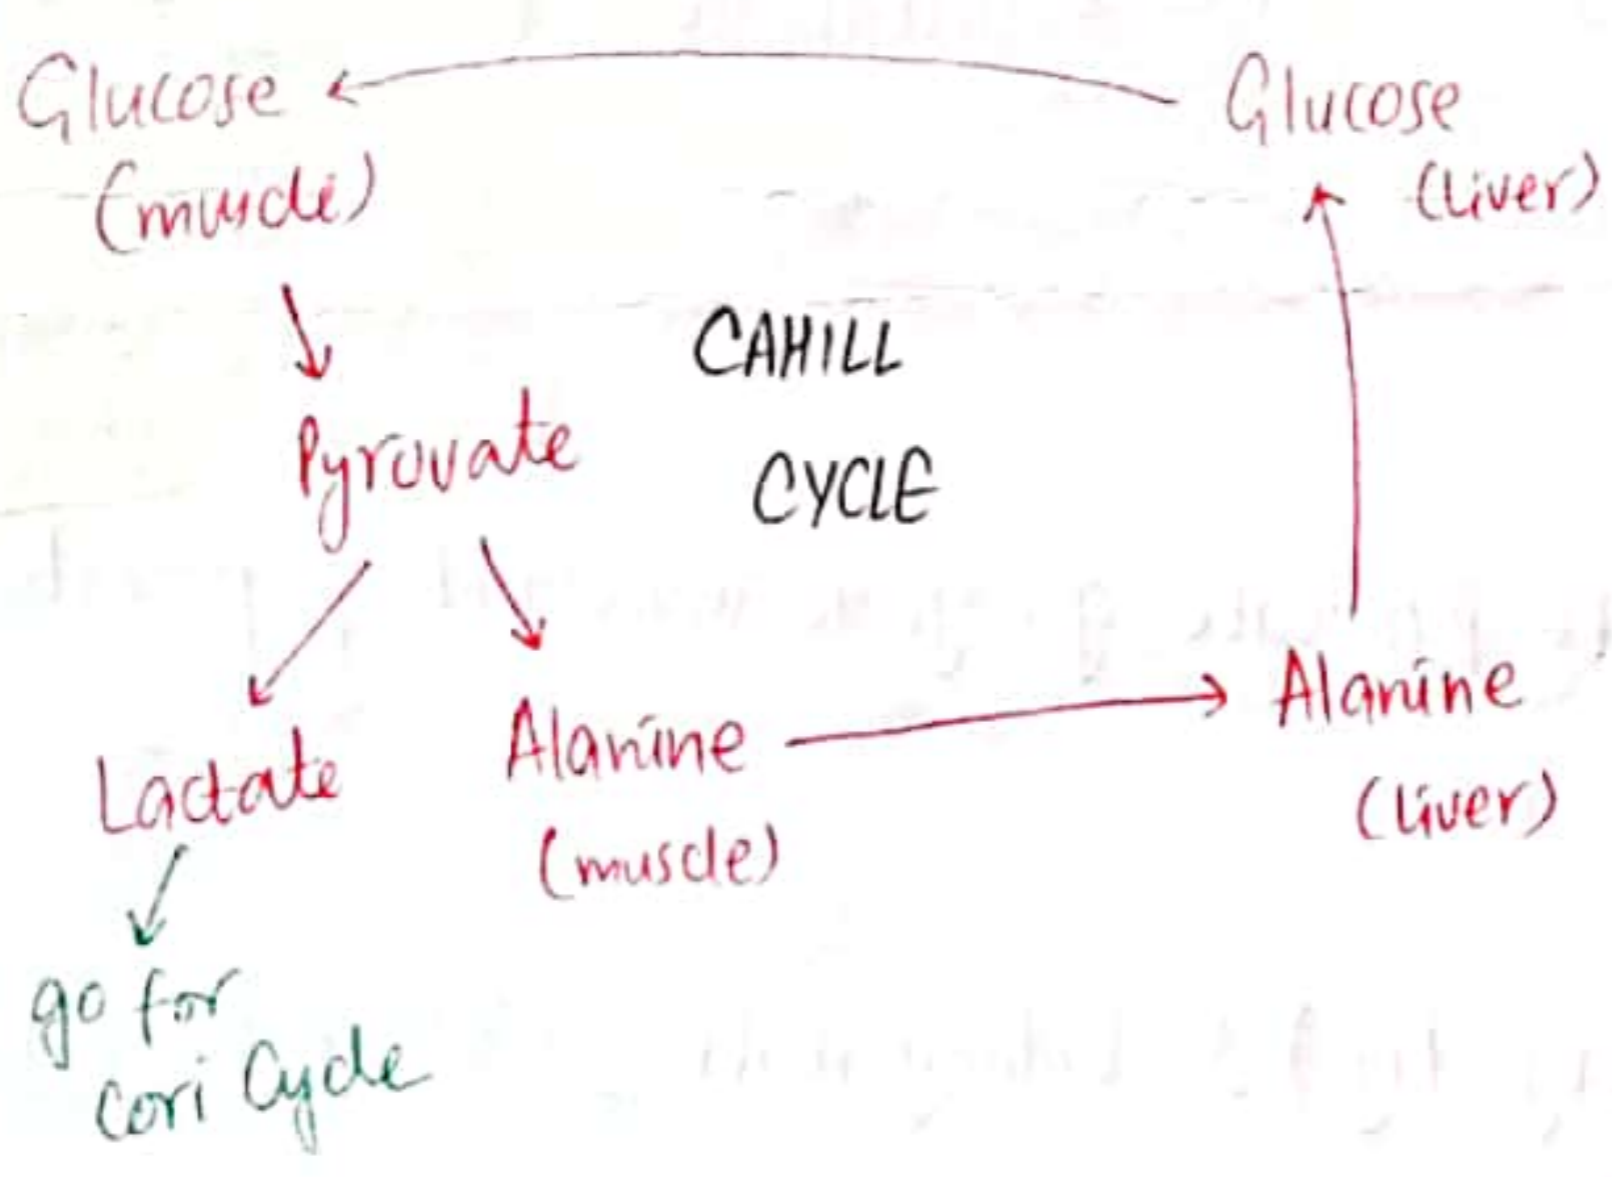 Glucose
(muscle)
Glucose
(liver)
CAHILL
CYCLE
Pyruvate
Lactate
Alanine
(muscle)
Alanine
(liver)
go for
Cori Cycle